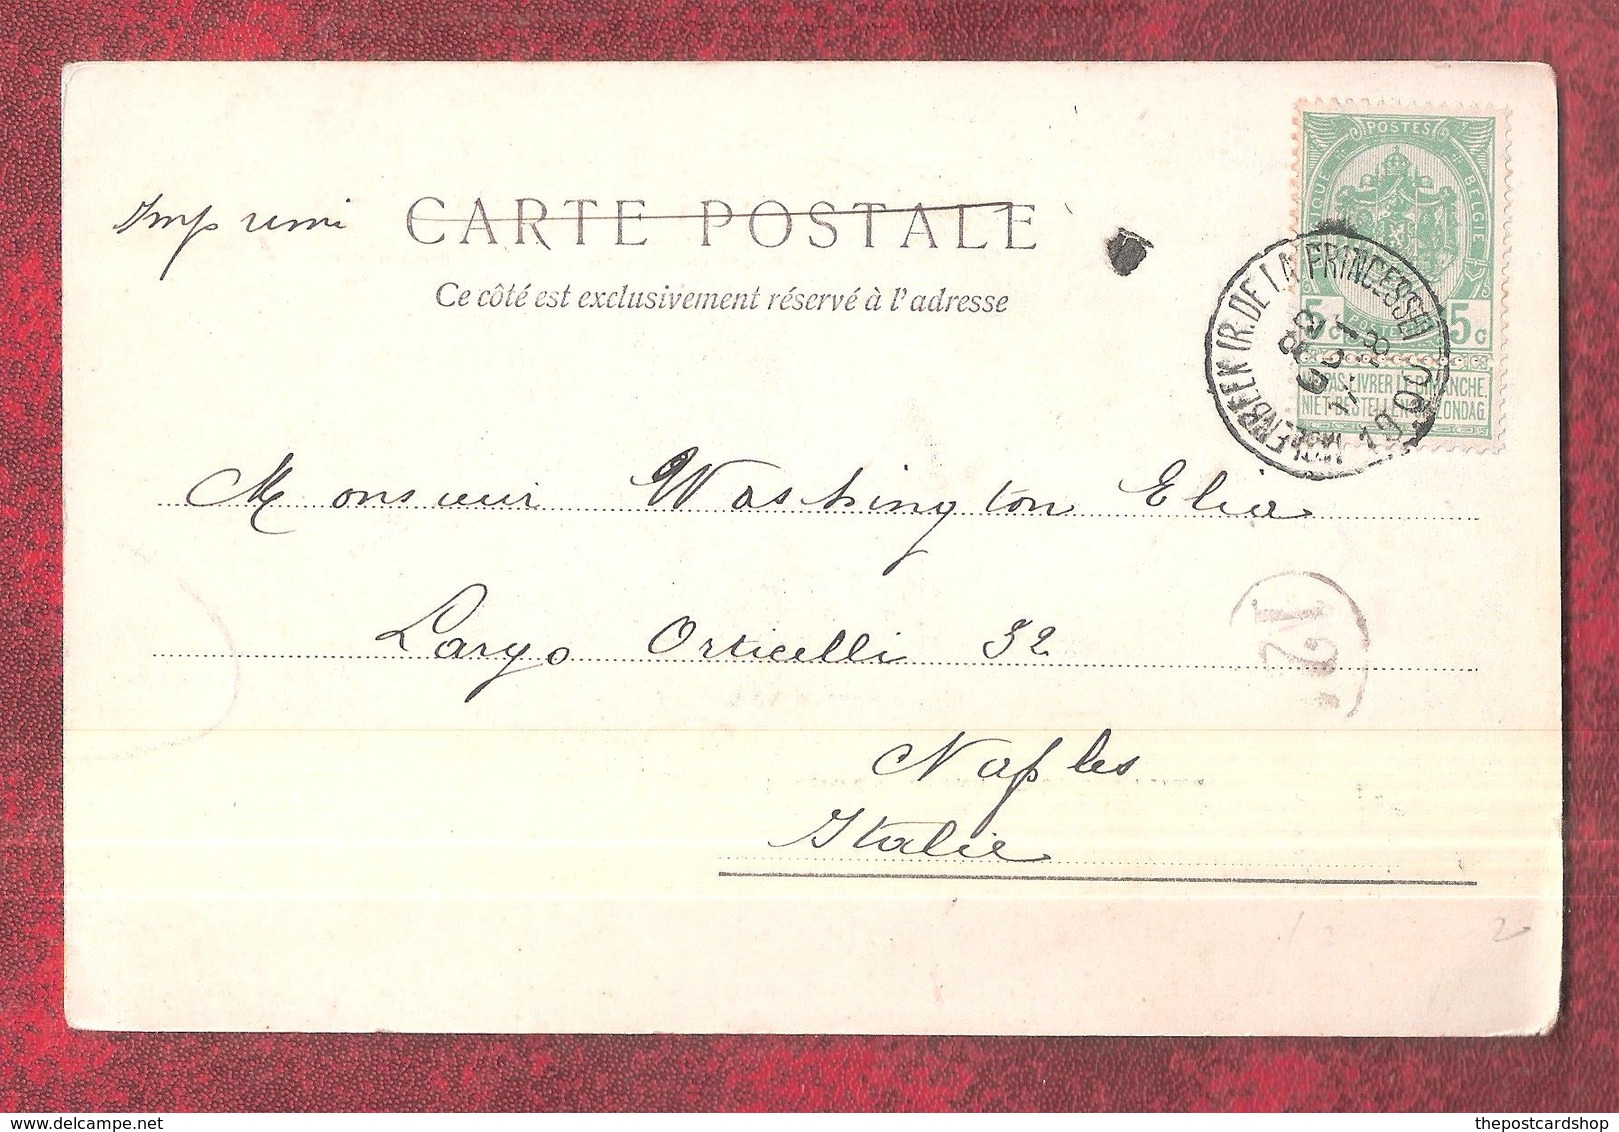 Imprimé
CARTE POSTALE
Ce côté est exclusivement réservé à l'adresse
POSTES
BELGIQUE
BELGIE
5c
POSTERIJEN
5c
NE PAS LIVRER LE DIMANCHE.
NIET BESTELLEN OP ZONDAG.
MOLENBEEK (R. DE LA PRINCESSE)
1900
Monsieur Washington Elia
Largo Orticelli 32
Naples
Italie
2
delcampe.net
thepostcardshop